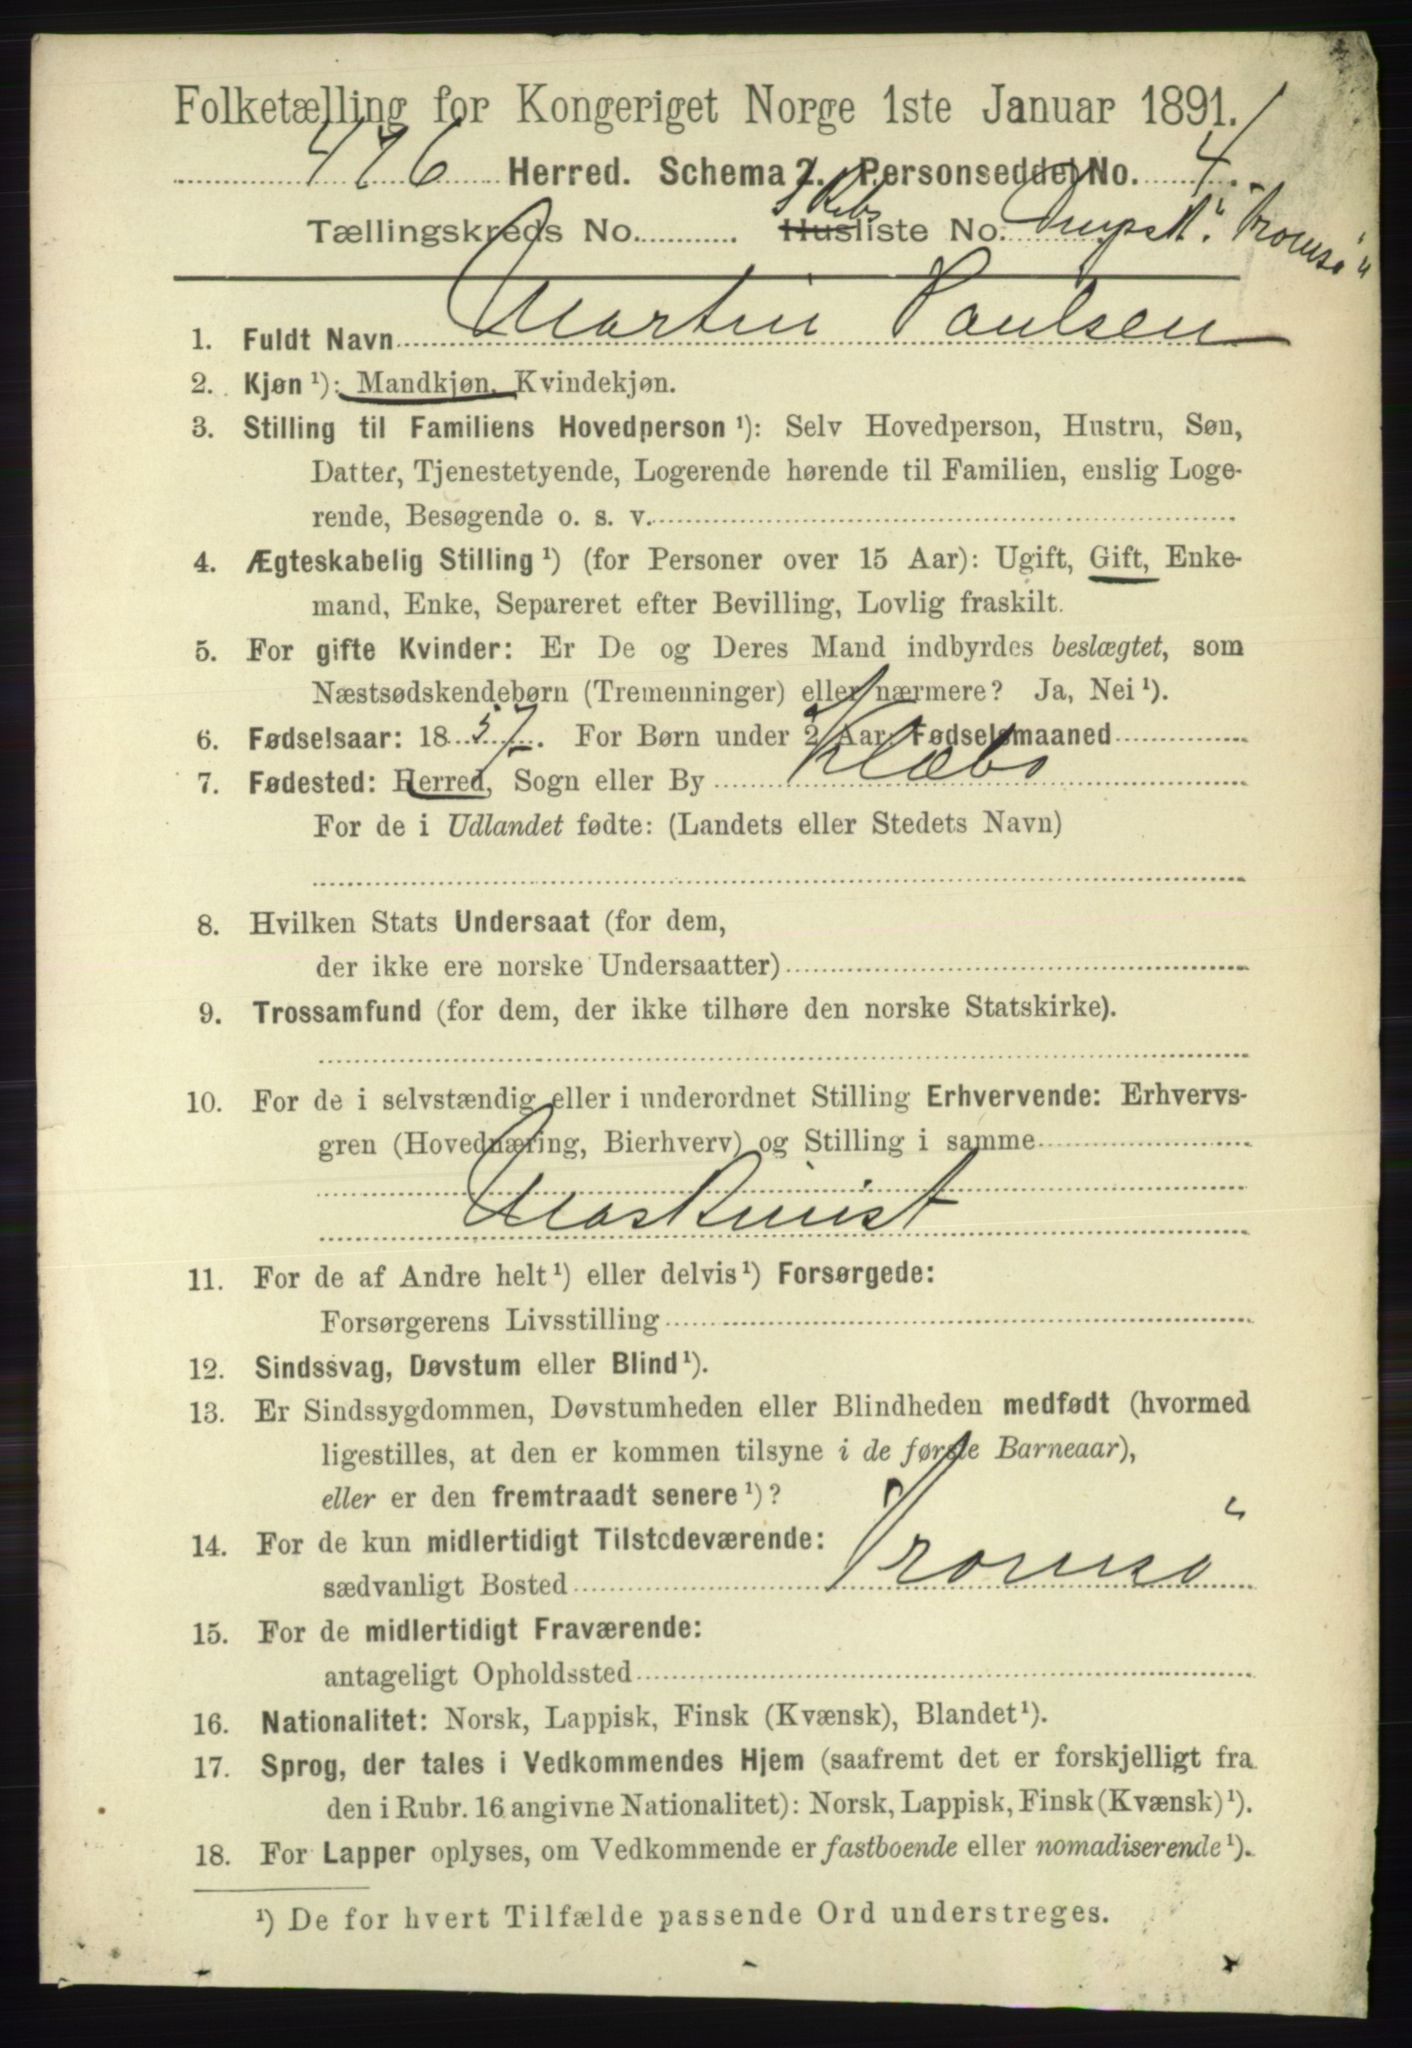 Folketælling for Kongeriget Norge 1ste Januar 1891.
476 Herred. Schema 2. Personseddel No. 4.
Tællingskreds No. Skibsliste No. Dmpsk. "Tromsø"
1. Fuldt Navn Martin Paulsen
2. Kjøn ¹): Mandkjøn, Kvindekjøn.
3. Stilling til Familiens Hovedperson ¹): Selv Hovedperson, Hustru, Søn,
Datter, Tjenestetyende, Logerende hørende til Familien, enslig Loge-
rende, Besøgende o. s. v.
4. Ægteskabelig Stilling ¹) (for Personer over 15 Aar): Ugift, Gift, Enke-
mand, Enke, Separeret efter Bevilling, Lovlig fraskilt.
5. For gifte Kvinder: Er De og Deres Mand indbyrdes beslægtet, som
Næstsødskendebørn (Tremenninger) eller nærmere? Ja, Nei ¹).
6. Fødselsaar: 1857. For Børn under 2 Aar: Fødselsmaaned
7. Fødested: Herred, Sogn eller By Klæbo
For de i Udlandet fødte: (Landets eller Stedets Navn)
8. Hvilken Stats Undersaat (for dem,
der ikke ere norske Undersaatter)
9. Trossamfund (for dem, der ikke tilhøre den norske Statskirke).
10. For de i selvstændig eller i underordnet Stilling Erhvervende: Erhvervs-
gren (Hovednæring, Bierhverv) og Stilling i samme
Maskinist
11. For de af Andre helt ¹) eller delvis ¹) Forsørgede:
Forsørgerens Livsstilling
12. Sindssvag, Døvstum eller Blind ¹).
13. Er Sindssygdommen, Døvstumheden eller Blindheden medfødt (hvormed
ligestilles, at den er kommen tilsyne i de første Barneaar),
eller er den fremtraadt senere ¹)?
14. For de kun midlertidigt Tilstedeværende:
sædvanligt Bosted Tromsø
15. For de midlertidigt Fraværende:
antageligt Opholdssted
16. Nationalitet: Norsk, Lappisk, Finsk (Kvænsk), Blandet ¹).
17. Sprog, der tales i Vedkommendes Hjem (saafremt det er forskjelligt fra
den i Rubr. 16 angivne Nationalitet): Norsk, Lappisk, Finsk (Kvænsk) ¹).
18. For Lapper oplyses, om Vedkommende er fastboende eller nomadiserende ¹).
¹) De for hvert Tilfælde passende Ord understreges.